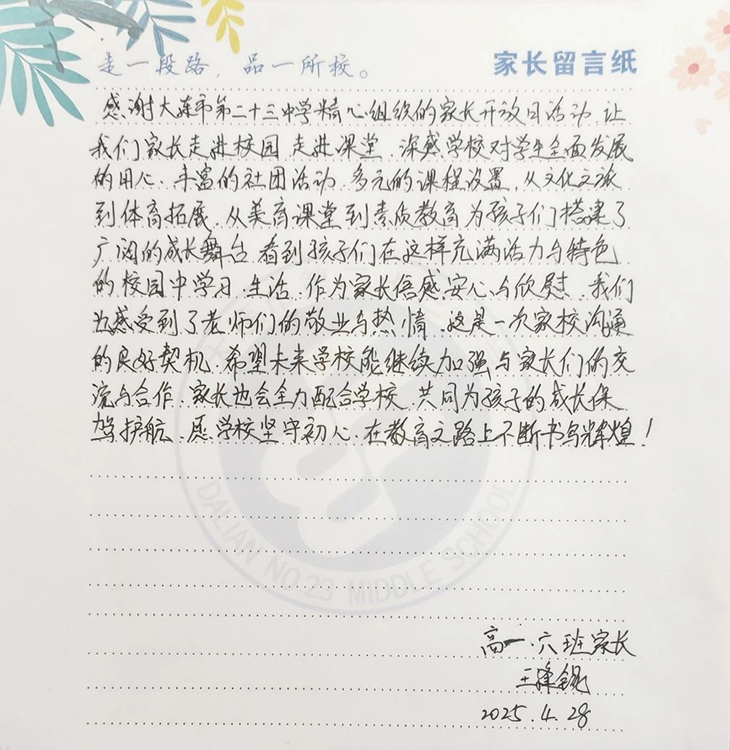 走一段路，品一所校。
家长留言纸
感谢大连市第二十三中学精心组织的家长开放日活动，让
我们家长走进校园，走进课堂，深感学校对学生全面发展
的用心。丰富的社团活动，多元的课程设置，从文化交流
到体育拓展，从美育课堂到素质教育为孩子们搭建了
广阔的成长舞台。看到孩子们在这样充满活力与特色
的校园中学习、生活，作为家长倍感安心与欣慰。我们
也感受到了老师们的敬业与热情，这是一次家校沟通
的良好契机。希望未来学校能继续加强与家长们的交
流与合作，家长也会全力配合学校，共同为孩子的成长保
驾护航。愿学校坚守初心，在教育之路上不断书写辉煌！
DALIAN NO.23 MIDDLE SCHOOL
高一·六班家长
王
2025.4.28